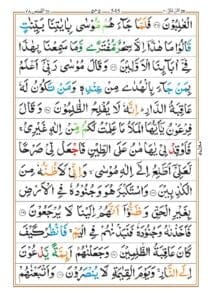 الْغٰلِبُوْنَ ۝ فَلَمَّا جَآءَهُمْ مُّوْسٰى بِاٰيٰتِنَا بَيِّنٰتٍ
قَالُوْا مَا هٰذَاۤ اِلَّا سِحْرٌ مُّفْتَرًى وَّمَا سَمِعْنَا بِهٰذَا
فِيْۤ اٰبَآئِنَا الْاَوَّلِيْنَ ۝ وَقَالَ مُوْسٰى رَبِّيْۤ اَعْلَمُ
بِمَنْ جَآءَ بِالْهُدٰى مِنْ عِنْدِهٖ وَمَنْ تَكُوْنُ لَهٗ
عَاقِبَةُ الدَّارِ ؕ اِنَّهٗ لَا يُفْلِحُ الظّٰلِمُوْنَ ۝ وَقَالَ
فِرْعَوْنُ يٰۤاَيُّهَا الْمَلَاُ مَا عَلِمْتُ لَكُمْ مِّنْ اِلٰهٍ غَيْرِيْ ۚ
فَاَوْقِدْ لِيْ يٰهَامٰنُ عَلَى الطِّيْنِ فَاجْعَلْ لِّيْ صَرْحًا
لَّعَلِّيْۤ اَطَّلِعُ اِلٰۤى اِلٰهِ مُوْسٰى ۙ وَاِنِّيْ لَاَظُنُّهٗ مِنَ
الْكٰذِبِيْنَ ۝ وَاسْتَكْبَرَ هُوَ وَجُنُوْدُهٗ فِي الْاَرْضِ
بِغَيْرِ الْحَقِّ وَظَنُّوْۤا اَنَّهُمْ اِلَيْنَا لَا يُرْجَعُوْنَ ۝
فَاَخَذْنٰهُ وَجُنُوْدَهٗ فَنَبَذْنٰهُمْ فِي الْيَمِّ ۚ فَانْظُرْ كَيْفَ
كَانَ عَاقِبَةُ الظّٰلِمِيْنَ ۝ وَجَعَلْنٰهُمْ اَئِمَّةً يَّدْعُوْنَ
اِلَى النَّارِ ۚ وَيَوْمَ الْقِيٰمَةِ لَا يُنْصَرُوْنَ ۝ وَاَتْبَعْنٰهُمْ